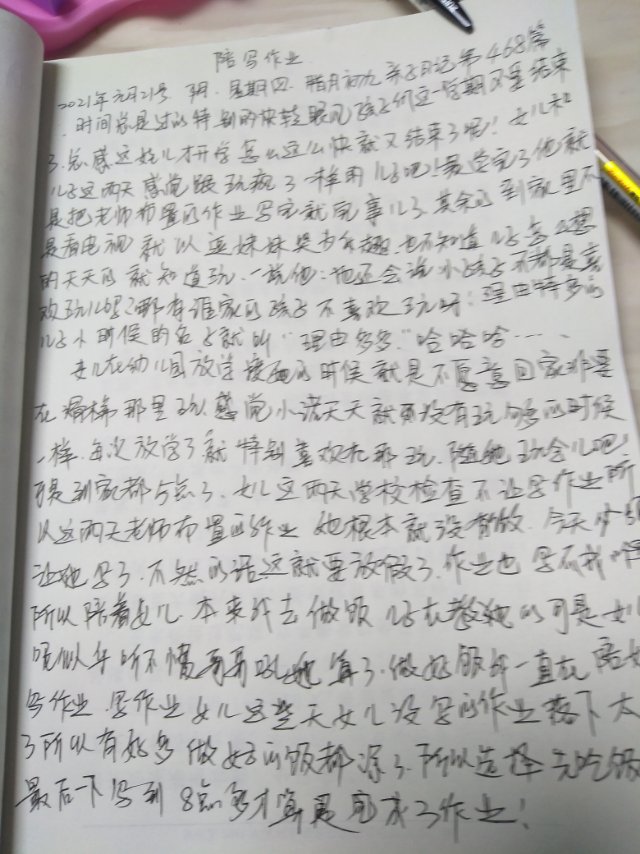 陪写作业
2021年元月21号 阴 星期四 腊月初九 亲子日记第468篇
时间总是过的特别的快转眼见孩子们这一学期又要结束
了.总感这才开学怎么这么快就又结束了呢!女儿和
儿子这两天感觉跟玩疯了一样 儿子吧!最学完了他就
是把老师布置的作业写完就完事儿了.其余的到家里不
是看电视就以逗妹妹哭为乐趣.也不知道儿子怎么想
的天天的就知道玩.一说他:他还会说小孩子不都是喜
欢玩儿吗?那有谁家的孩子不喜欢玩呀:理由特多的
儿子小时候的名字就叫“理由多多.”哈哈哈……
女儿在幼儿园放学接她的时候就是不愿意回家非要
在滑梯那里玩.感觉小诺天天就跟没有玩够的时候
一样.每次放学了就特别喜欢在那玩.随她玩会儿吧!
可是到家都5点了.女儿这两天学校检查不让写作业所
以这两天老师布置的作业她根本就没有做.今天
让她写了.不然的话这就要放假了.作业也写不我啊
所以陪着女儿.本来我去做饭 儿子在教她的可是女儿
听不懂哥哥 她算了.做好饭我一直在陪女
写作业.写作业女儿这些天女儿没写的作业落下太
了所以有好多做好的饭都凉了.所以选择先吃饭
最后一下写到8点多才算是完成了作业!